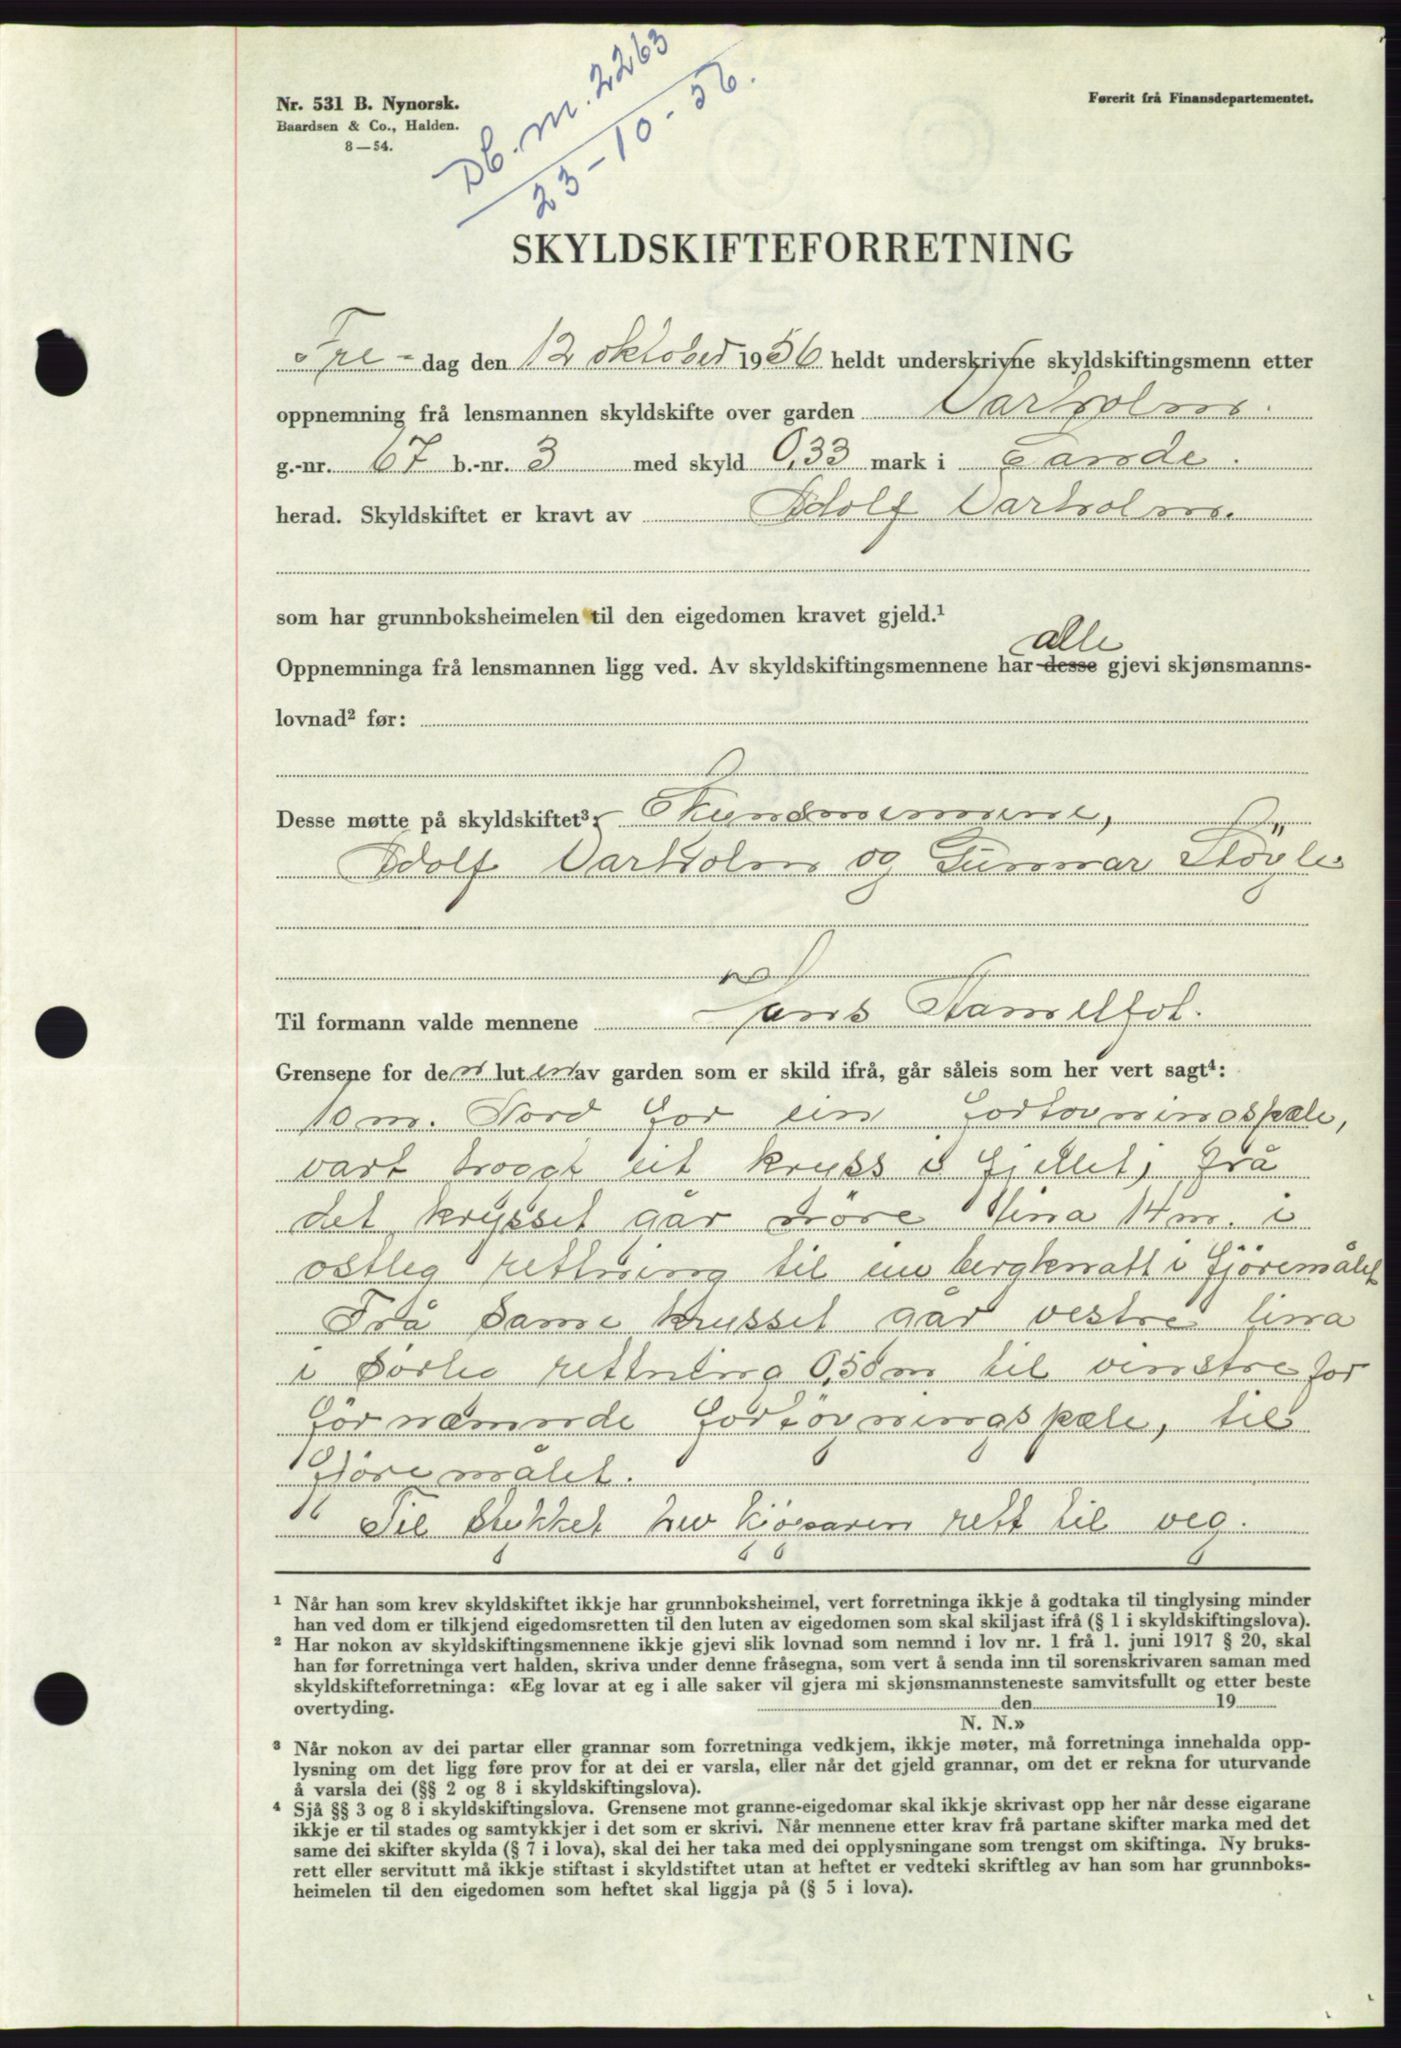 Db. nr. 2263
23-10-56.
Nr. 531 B. Nynorsk.
Baardsen & Co., Halden.
8—54.
Førerit frå Finansdepartementet.
SKYLDSKIFTEFORRETNING
Fre- dag den 12 oktober 1956 heldt underskrivne skyldskiftingsmenn etter
oppnemning frå lensmannen skyldskifte over garden Varholm.
g.-nr. 67 b.-nr. 3 med skyld 0,33 mark i Sande.
herad. Skyldskiftet er kravt av Adolf Varholm.
som har grunnboksheimelen til den eigedomen kravet gjeld.¹
alle
Oppnemninga frå lensmannen ligg ved. Av skyldskiftingsmennene har desse gjevi skjønsmanns-
lovnad² før:
Desse møtte på skyldskiftet³:
Adolf Varholm og Gunnar Støyle
Til formann valde mennene Jens Hamelfot.
Grensene for den luten av garden som er skild ifrå, går såleis som her vert sagt⁴:
10 m. Nord for ein fortovningspæle,
vart hoggt eit kryss i fjellet, frå
det krysset går nöre lina 14 m. i
ostleg rettning til ein bergknatt i fjöremålet
Frå same krysset går vestre lina
i sörleg rettning 0,50 m til vinstre for
förnæmnde fortövningspæle, til
fjöremålet.
Til stykket hev kjöparen rett til veg.
¹ Når han som krev skyldskiftet ikkje har grunnboksheimel, vert forretninga ikkje å godtaka til tinglysing minder
han ved dom er tilkjend eigedomsretten til den luten av eigedomen som skal skiljast ifrå (§ 1 i skyldskiftingslova).
² Har nokon av skyldskiftingsmennene ikkje gjevi slik lovnad som nemnd i lov nr. 1 frå 1. juni 1917 § 20, skal
han før forretninga vert halden, skriva under denne fråsegna, som vert å senda inn til sorenskrivaren saman med
skyldskifteforretninga: «Eg lovar at eg i alle saker vil gjera mi skjønsmannsteneste samvitsfullt og etter beste
overtyding. den 19
N. N.»
³ Når nokon av dei partar eller grannar som forretninga vedkjem, ikkje møter, må forretninga innehalda opp-
lysning om det ligg føre prov for at dei er varsla, eller når det gjeld grannar, om det er rekna for uturvande
å varsla dei (§§ 2 og 8 i skyldskiftingslova).
⁴ Sjå §§ 3 og 8 i skyldskiftingslova. Grensene mot granne-eigedomar skal ikkje skrivast opp her når desse eigarane
ikkje er til stades og samtykkjer i det som er skrivi. Når mennene etter krav frå partane skifter marka med det
same dei skifter skylda (§ 7 i lova), skal dei her taka med dei opplysningane som trengst om skiftinga. Ny bruks-
rett eller servitutt må ikkje stiftast i skyldstiftet utan at heftet er vedteki skriftleg av han som har grunnboks-
heimelen til den eigedomen som heftet skal liggja på (§ 5 i lova).